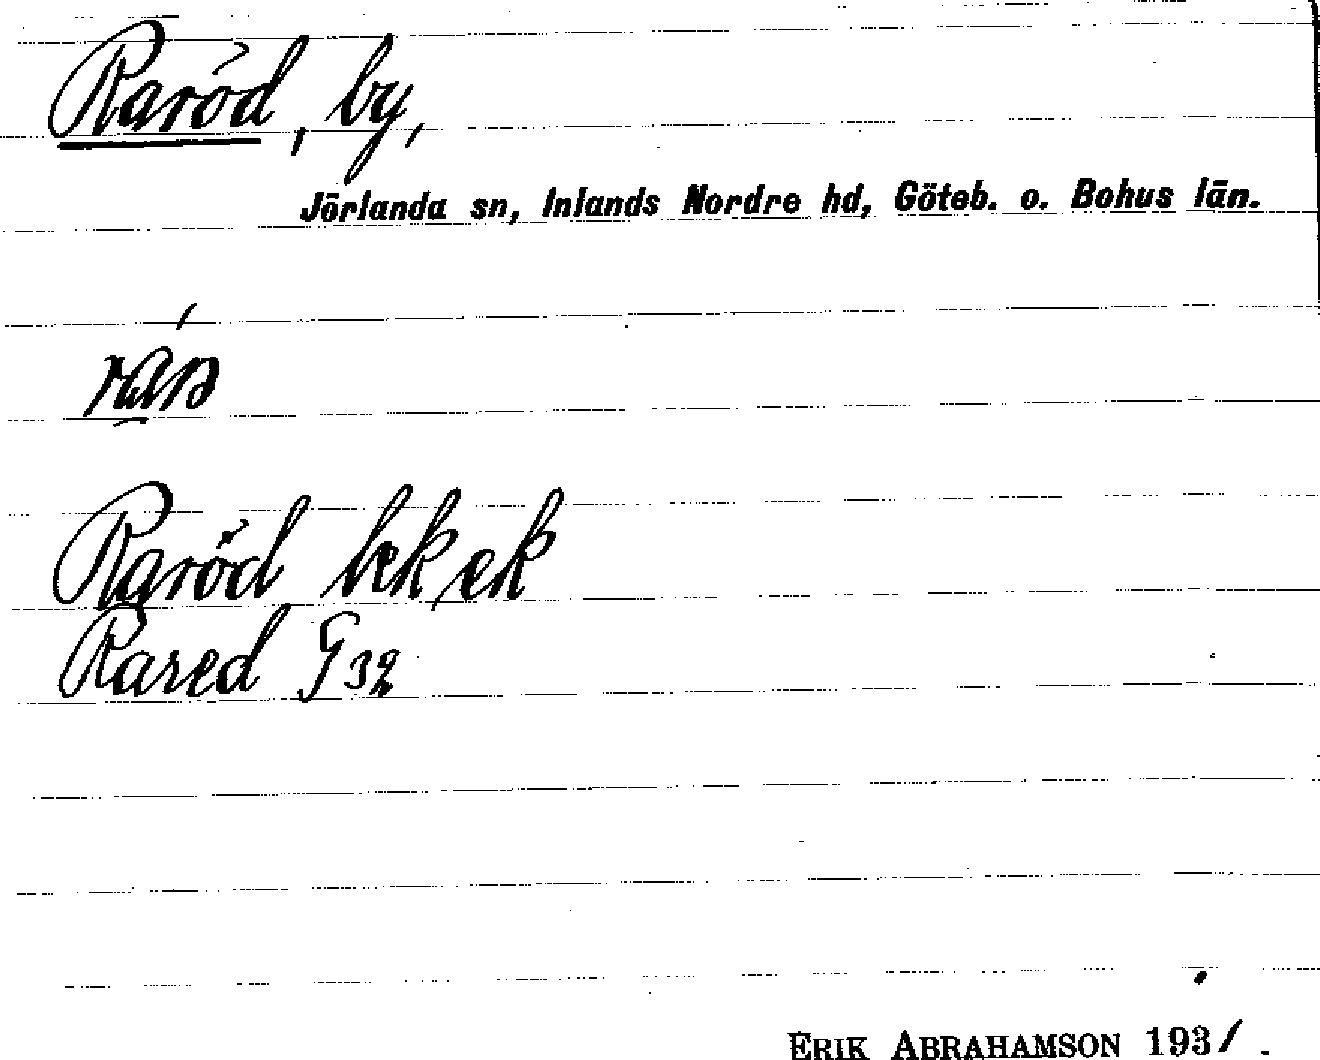 Raröd, by,
Jörlanda sn, Inlands Nordre hd, Göteb. o. Bohus län.
Raröd bek, ek
Rared G 32
ERIK ABRAHAMSON 1931.